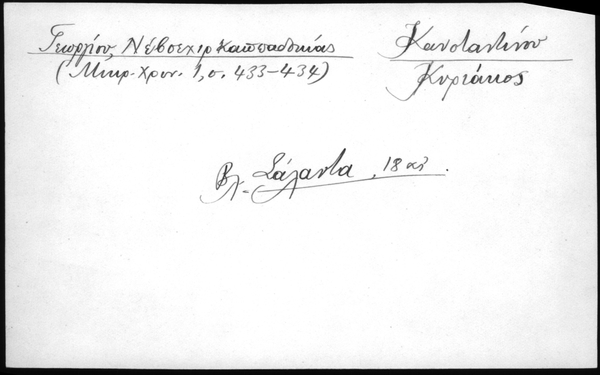 Γεωργίου, Νέβσεχιρ Καππαδοκίας
(Μικρ. Χρον. 1, σ. 433-434)
Κωνσταντίνου
Κυριάκος
Βλ. Σάλαντα, 18 αἰ.